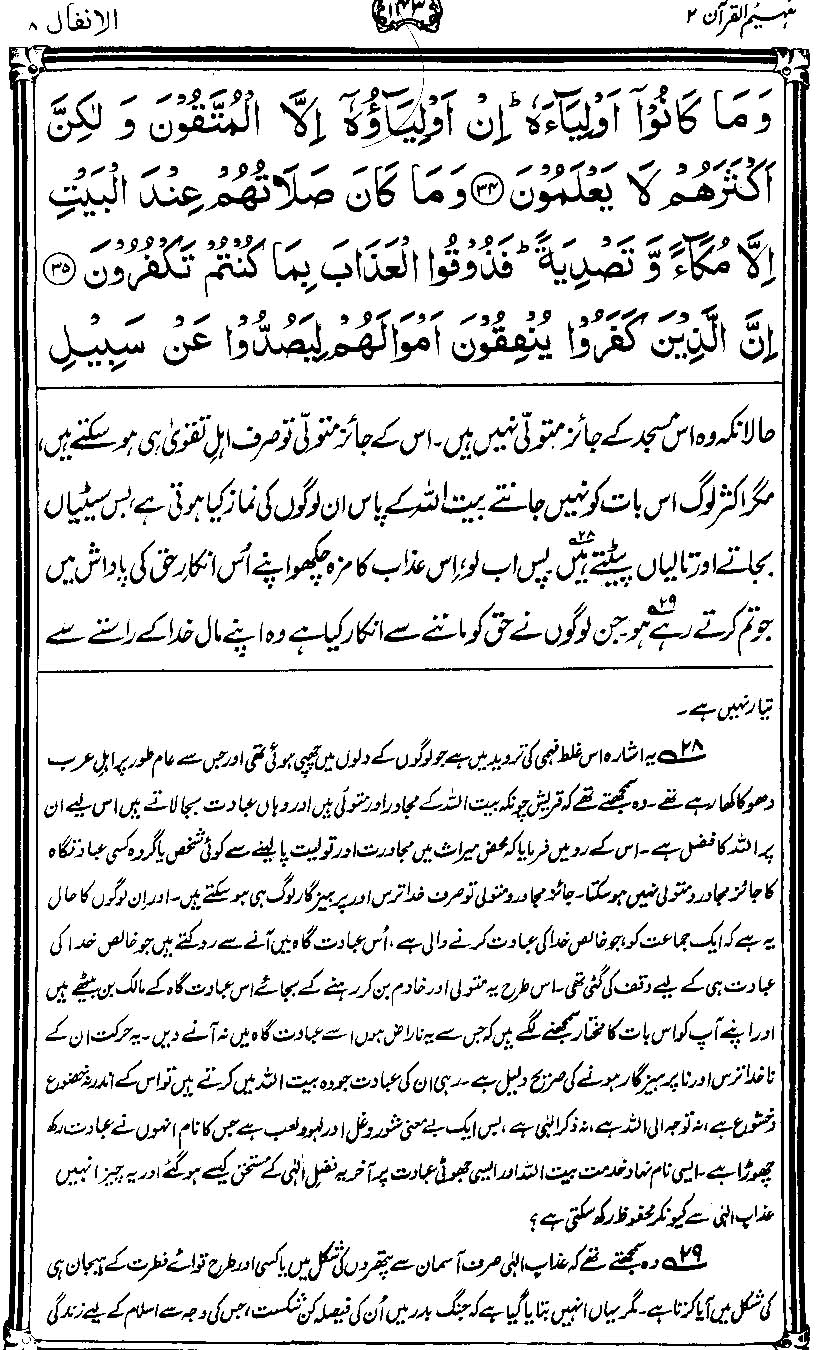 تفہیم القرآن ۲
۱۴۳
الانفال ۸
وَمَا كَانُوْٓا اَوْلِيَآءَهٗ ؕ اِنْ اَوْلِيَآؤُهٗٓ اِلَّا الْمُتَّقُوْنَ وَلٰكِنَّ
اَكْثَرَهُمْ لَا يَعْلَمُوْنَ ۝۳۴ وَمَا كَانَ صَلَاتُهُمْ عِنْدَ الْبَيْتِ
اِلَّا مُكَآءً وَّ تَصْدِيَةً ؕ فَذُوْقُوا الْعَذَابَ بِمَا كُنْتُمْ تَكْفُرُوْنَ ۝۳۵
اِنَّ الَّذِيْنَ كَفَرُوْا يُنْفِقُوْنَ اَمْوَالَهُمْ لِيَصُدُّوْا عَنْ سَبِيْلِ
حالانکہ وہ اس مسجد کے جائز متولّی نہیں ہیں۔ اس کے جائز متولّی تو صرف اہلِ تقویٰ ہی ہو سکتے ہیں،
مگر اکثر لوگ اس بات کو نہیں جانتے بیت اللہ کے پاس ان لوگوں کی نماز کیا ہوتی ہے، بس سیٹیاں
بجاتے اور تالیاں پیٹتے ہیں۲۸۔ پس اب لو، اِس عذاب کا مزہ چکھو اپنے اُس انکارِ حق کی پاداش میں
جو تم کرتے رہے ہو۲۹۔ جن لوگوں نے حق کو ماننے سے انکار کیا ہے وہ اپنے مال خدا کے راستے سے
تیار نہیں ہے۔
۲۸ یہ اشارہ اس غلط فہمی کی تردید میں ہے جو لوگوں کے دلوں میں چھپی ہوئی تھی اور جس سے عام طور پر اہلِ عرب
دھوکا کھا رہے تھے۔ وہ سمجھتے تھے کہ قریش چونکہ بیت اللہ کے مجاور اور متولّی ہیں اور وہاں عبادت بجا لاتے ہیں اس لیے ان
پر اللہ کا فضل ہے۔ اس کے رد میں فرمایا کہ محض میراث میں مجاورت اور تولیت پا لینے سے کوئی شخص یا گروہ کسی عبادت گاہ
کا جائز مجاور و متولی نہیں ہو سکتا۔ جائز مجاور و متولی تو صرف خدا ترس اور پرہیزگار لوگ ہی ہو سکتے ہیں۔ اور اِن لوگوں کا حال
یہ ہے کہ ایک جماعت کو، جو خالص خدا کی عبادت کرنے والی ہے، اُس عبادت گاہ میں آنے سے روکتے ہیں جو خالص خدا کی
عبادت ہی کے لیے وقف کی گئی تھی۔ اس طرح یہ متولی اور خادم بن کر رہنے کے بجائے اس عبادت گاہ کے مالک بن بیٹھے ہیں
اور اپنے آپ کو اس بات کا مختار سمجھنے لگے ہیں کہ جس سے یہ ناراض ہوں اسے عبادت گاہ میں نہ آنے دیں۔ یہ حرکت ان کے
ناخدا ترس اور ناپرہیزگار ہونے کی صریح دلیل ہے۔ رہی ان کی عبادت جو وہ بیت اللہ میں کرتے ہیں تو اس کے اندر نہ خضوع
و خشوع ہے، نہ توجہ الی اللہ ہے، نہ ذکر الٰہی ہے، بس ایک بے معنی شور و غل اور لہو و لعب ہے جس کا نام انہوں نے عبادت رکھ
چھوڑا ہے۔ ایسی نام نہاد خدمت بیت اللہ اور ایسی جھوٹی عبادت پر آخر یہ فضلِ الٰہی کے مستحق کیسے ہو گئے اور یہ چیز انہیں
عذاب الٰہی سے کیونکر محفوظ رکھ سکتی ہے؟
۲۹ وہ سمجھتے تھے کہ عذاب الٰہی صرف آسمان سے پتھروں کی شکل میں یا کسی اور طرح قوائے فطرت کے ہیجان ہی
کی شکل میں آیا کرتا ہے۔ مگر یہاں انہیں بتایا گیا ہے کہ جنگ بدر میں اُن کی فیصلہ کن شکست، جس کی وجہ سے اسلام کے لیے زندگی